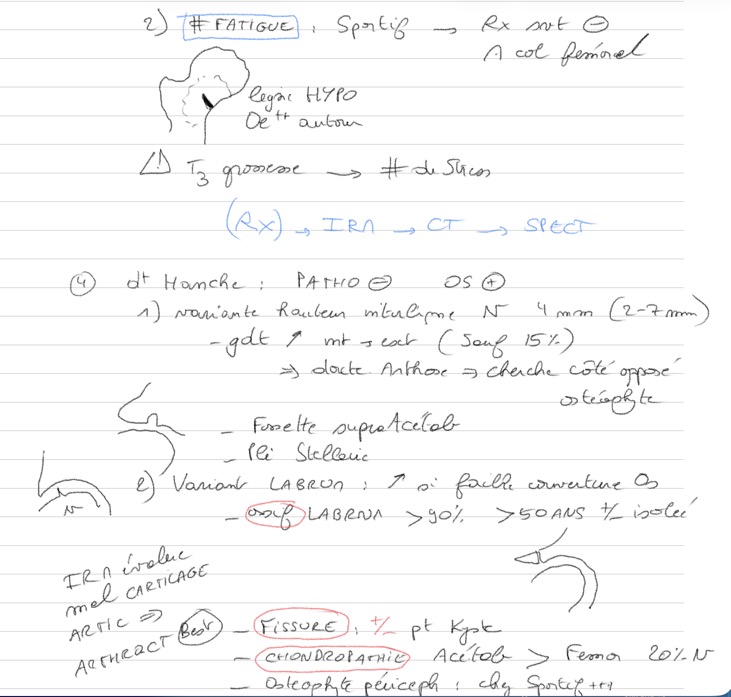 2) # FATIGUE : Sportif → Rx svt ⊖
∧ col fémoral
legne HYPO
Oe++ autour
⚠ T3 grossesse → # de Stress
(Rx) → IRM → CT → SPECT
④ dt Hanche : PATHO ⊖ OS ⊕
1) variante hauteur interligne N 4 mm (2-7mm)
- gdt ↑ int → ext (Sauf 15%)
⇒ doute Arthose ⇒ cherche côté opposé
ostéophyte
- Fossette supraAcétab
- Pli Stellaire
2) Variant LABRUM : ↑ si faible couverture Os
N
- ossif LABRUM > 90% > 50 ANS +/- isolée
IRM évalue
mal CARTILAGE
ARTIC ⇒
ARTHROCT Best
- FISSURE : +/- pt Kyste
- CHONDROPATHIE Acétab > Femor 20% N
- Ostéophyte périceph : chez Sportif ++